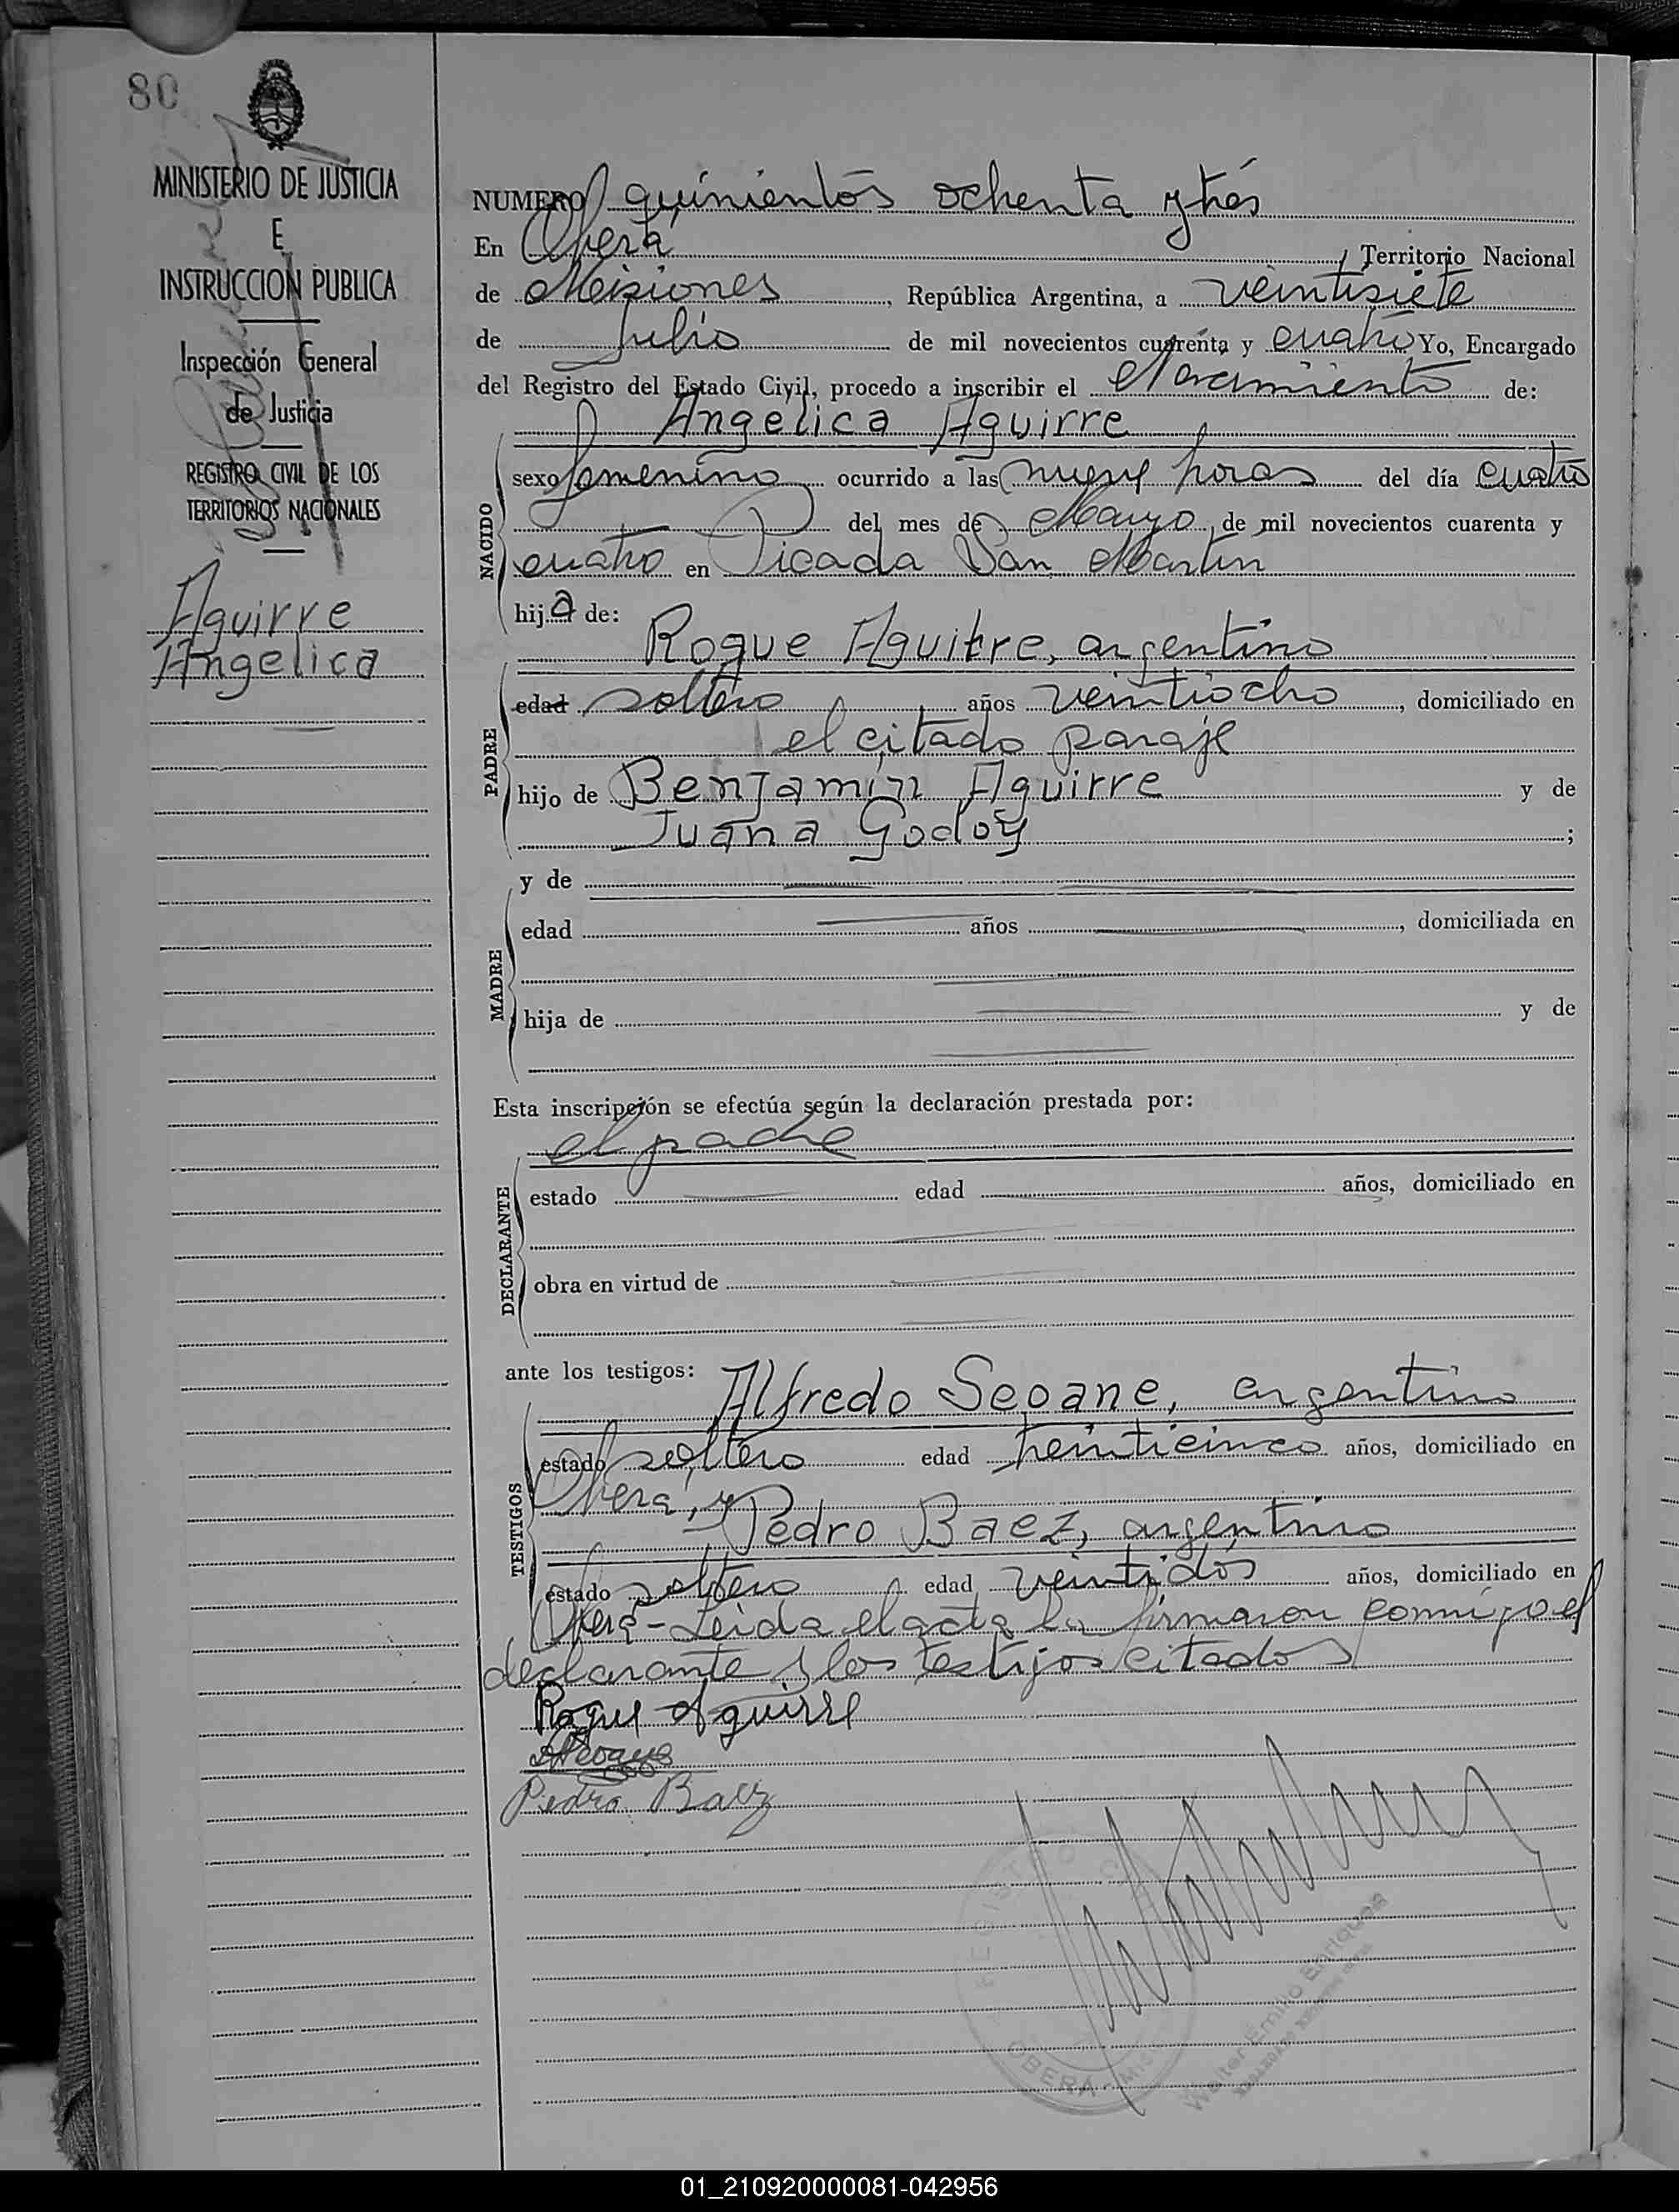 80
MINISTERIO DE JUSTICIA
E
INSTRUCCION PUBLICA
Inspección General
de Justicia
REGISTRO CIVIL DE LOS
TERRITORIOS NACIONALES
Aguirre
Angelica
NUMERO quinientos ochenta y tres
En Oberá, Territorio Nacional
de Misiones, República Argentina, a veintisiete
de Julio de mil novecientos cuarenta y cuatro Yo, Encargado
del Registro del Estado Civil, procedo a inscribir el Nacimiento de:
Angelica Aguirre
NACIDO
sexo femenino ocurrido a las nueve horas del día cuatro
del mes de Mayo, de mil novecientos cuarenta y
cuatro en Picada San Martin
hija de:
Roque Aguirre, argentino
PADRE
edad soltero años veintiocho, domiciliado en
el citado paraje
hijo de Benjamín Aguirre y de
Juana Godoy;
y de
MADRE
edad años, domiciliada en
hija de y de
Esta inscripción se efectúa según la declaración prestada por:
el padre
DECLARANTE
estado edad años, domiciliado en
obra en virtud de
ante los testigos:
Alfredo Seoane, argentino
TESTIGOS
estado soltero edad treinticinco años, domiciliado en
Oberá, y
Pedro Baez, argentino
estado soltero edad veintidos años, domiciliado en
Oberá - Leida el acta la firmaron conmigo el
declarante y los testijos citados
Roque Aguirre
Pedro Baez
REGISTRO
OBERA
Walter Emilio Enriquez
01_210920000081-042956